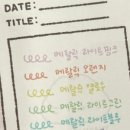 DATE:
TITLE:
메탈릭 라이트핑크
메탈릭 오렌지
메탈릭 옐로우
메탈릭 라이트그린
메탈릭 라이트블루